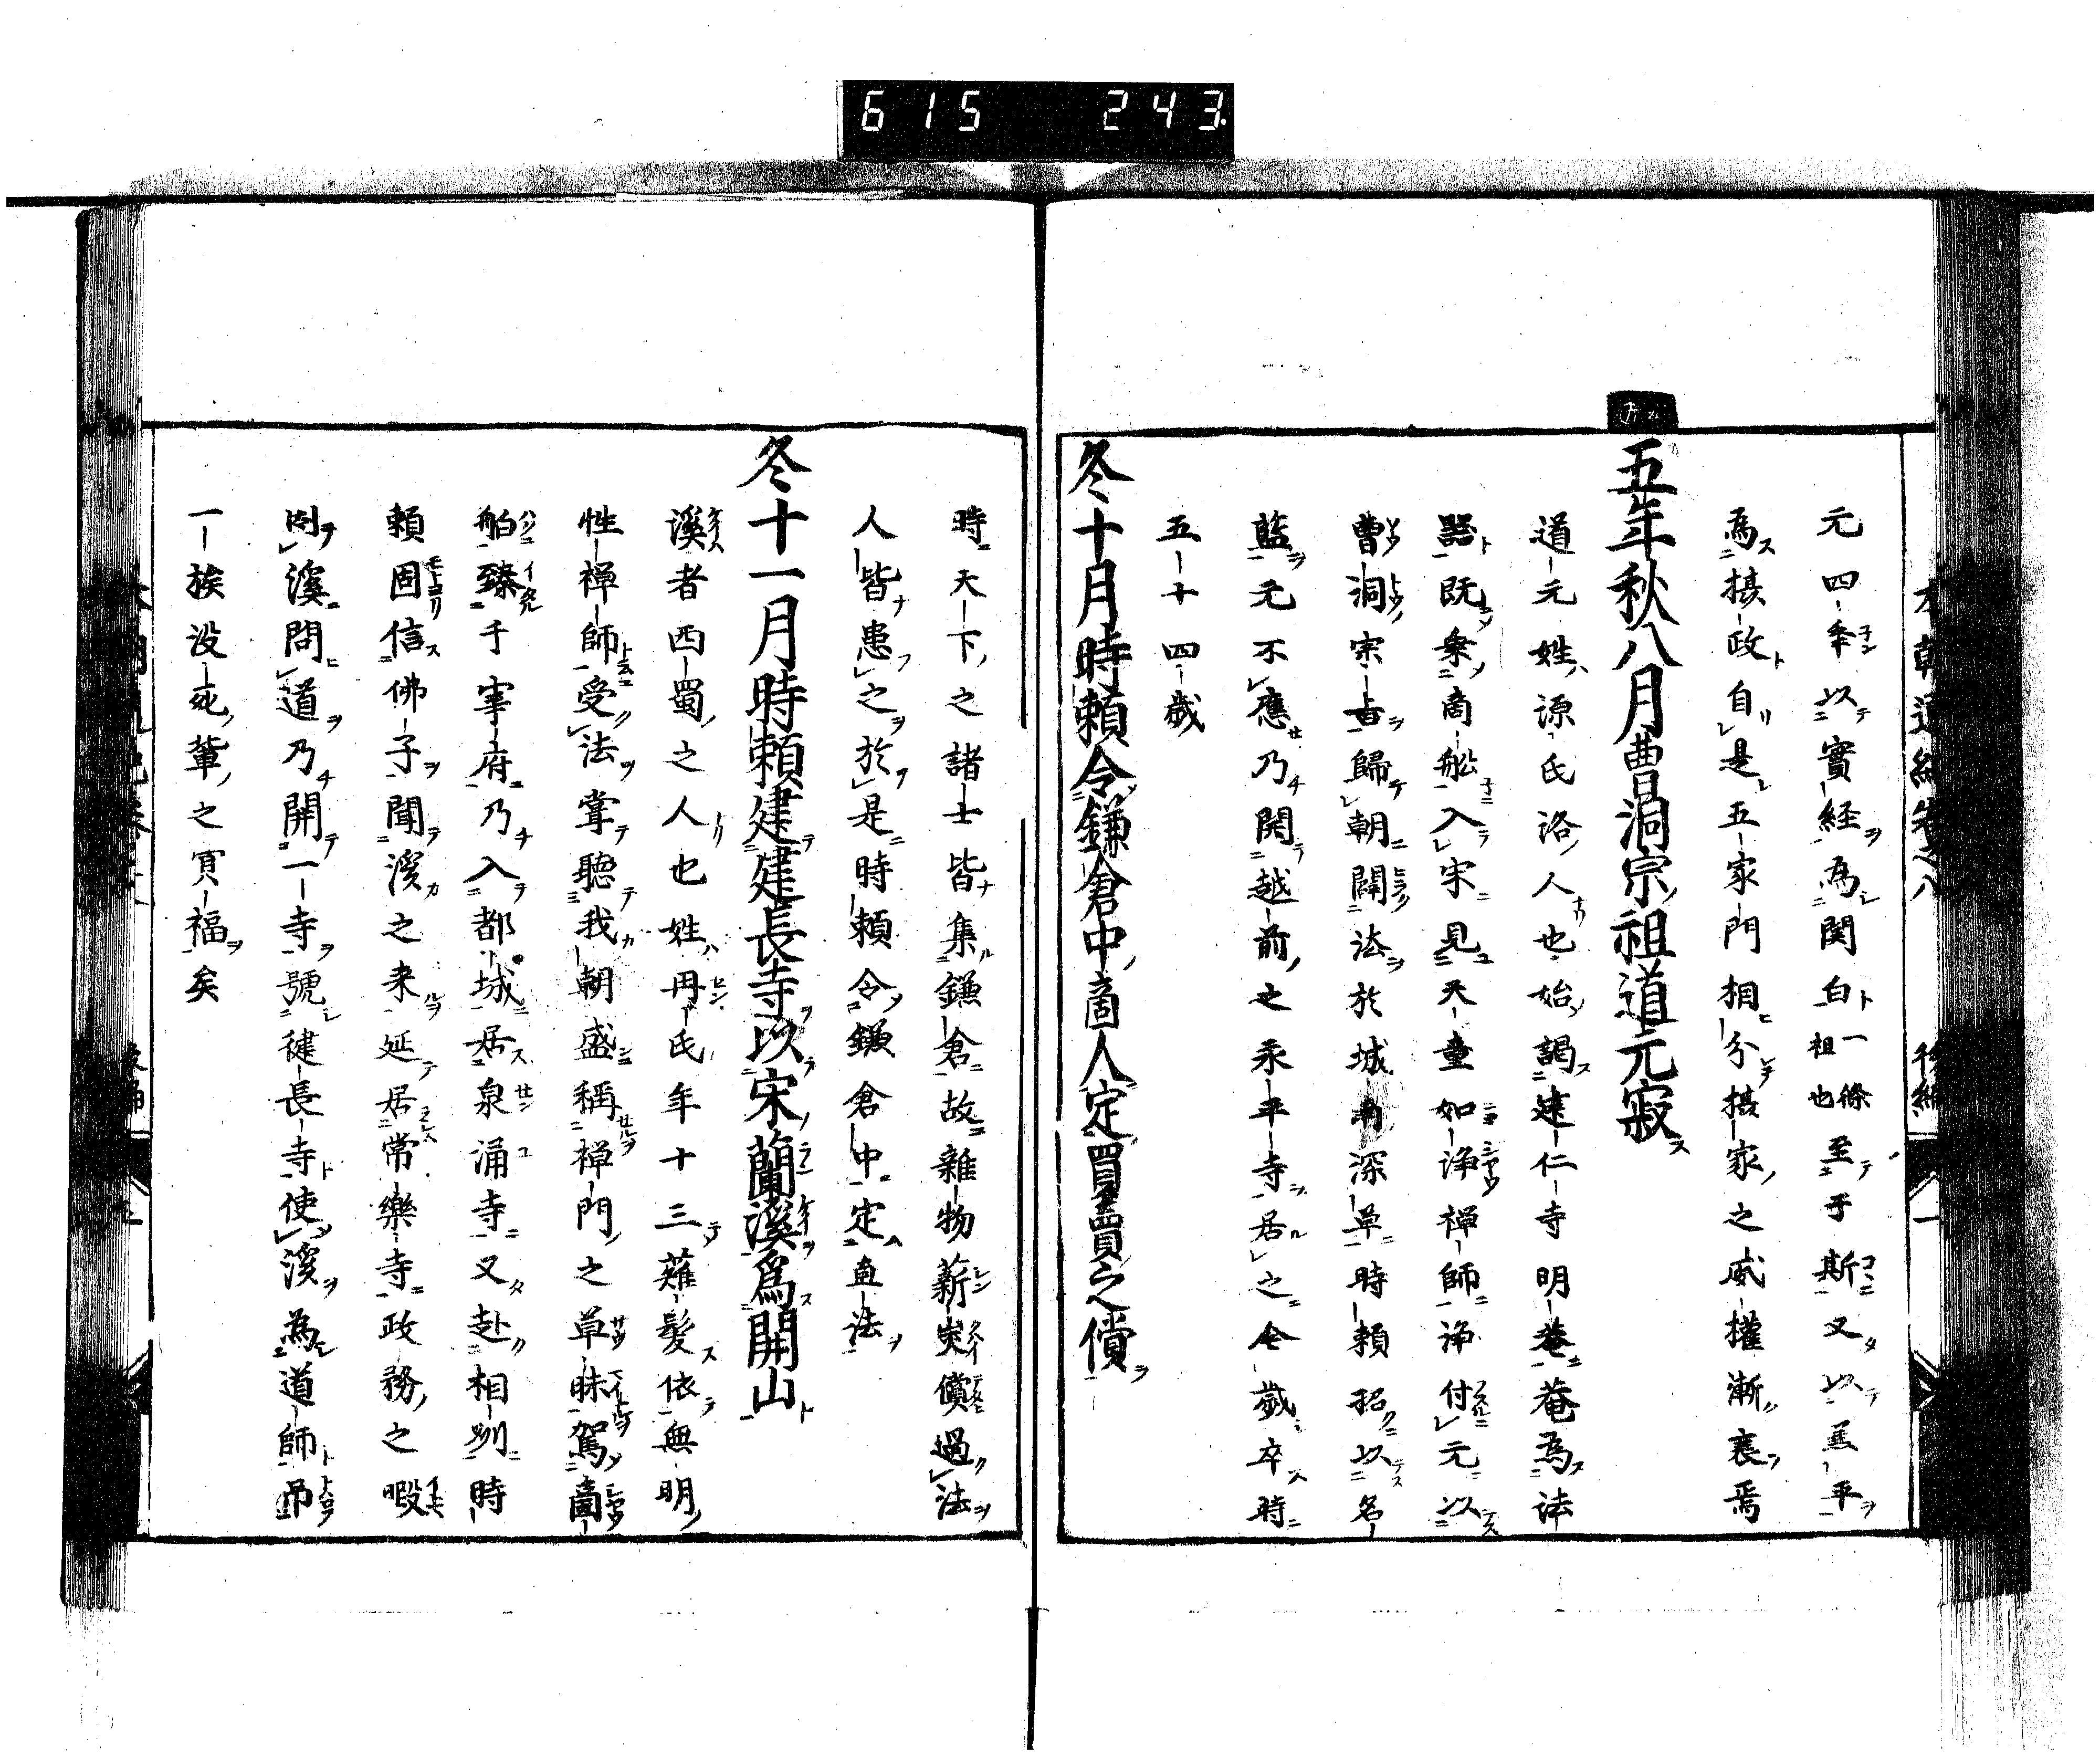 615 243
元四年以實経為関白一條祖也至于斯又以兼平
為摂政自是五家門相分摂家之威權漸衰焉
五年秋八月曹洞宗祖道元寂
道元姓源氏洛人也始謁建仁寺明菴菴為法
器既乗商舩入宋見天童如浄禅師浄付元以
曹洞宗旨歸朝闢法於城南深草時頼招以名
藍元不應乃開越前之永平寺居之今歳卒時
五十四歳
冬十月時頼令鎌倉中商人定買賣之價
時天下之諸士皆集鎌倉故雜物薪炭價過法
人皆患之於是時頼令鎌倉中定直法
冬十一月時頼建建長寺以宋蘭溪爲開山
溪者西蜀之人也姓冉氏年十三薙髮依無明
性禅師受法掌聽我朝盛稱禅門之草昧駕商
舶臻于宰府乃入都城居泉涌寺又赴相州時
頼固信佛子聞溪之来延居常樂寺政務之暇
溪問道乃開一寺號建長寺使溪為道師吊
一族没死輩之冥福矣